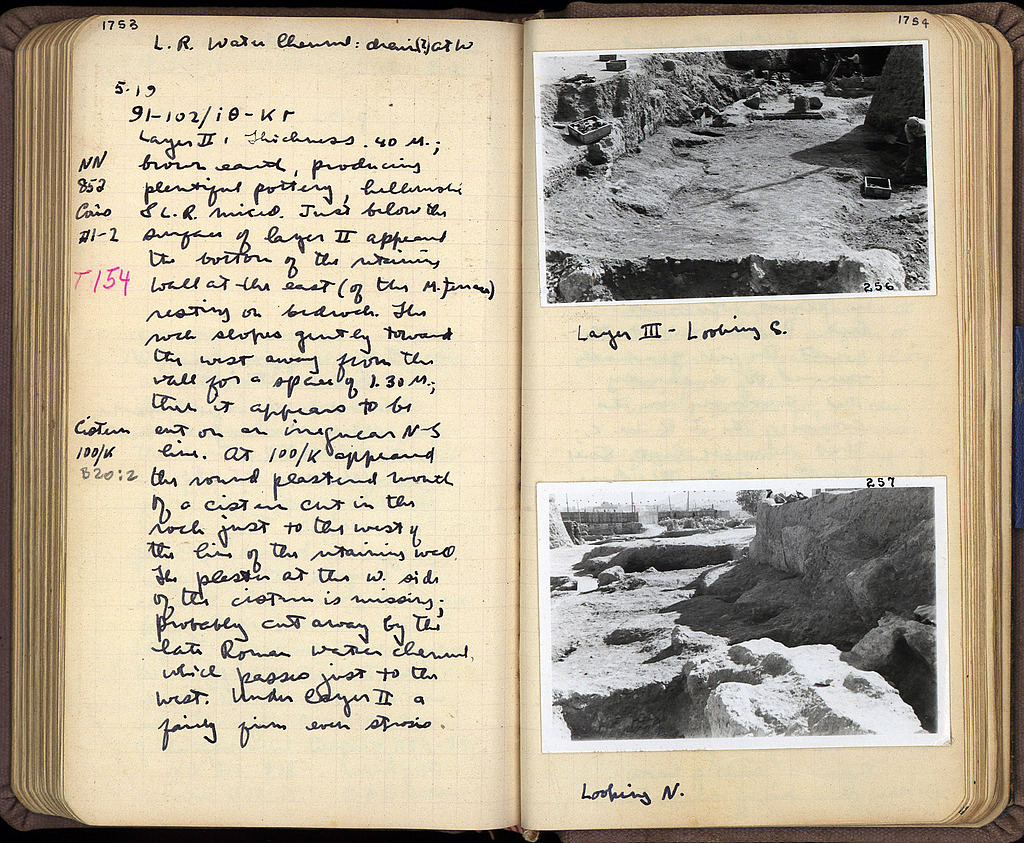 1753
L. R. Water Channel: drain(?) at W
5-19
91-102/ΙΘ-ΚΓ
Layer II: Thickness .40 M.;
NN brown earth, producing
853 plentiful pottery, hellenistic
Coins & L.R. mixed. Just below the
#1-2 surface of layer II appeared
the bottom of the retaining
T154 wall at the east (of the M. Terrace)
resting on bedrock. The
rock slopes gently toward
the west away from the
wall for a space of 1.30 M.;
then it appears to be
Cistern cut on an irregular N-S
100/K line. At 100/K appeared
B20:2 the round plastered mouth
of a cistern cut in the
rock just to the west of
the line of the retaining wall.
The plaster at the W. side
of the cistern is missing;
probably cut away by the
late Roman water channel,
which passes just to the
west. Under layer II a
fairly firm even strosis.
1754
256
Layer III - Looking S.
257
Looking N.